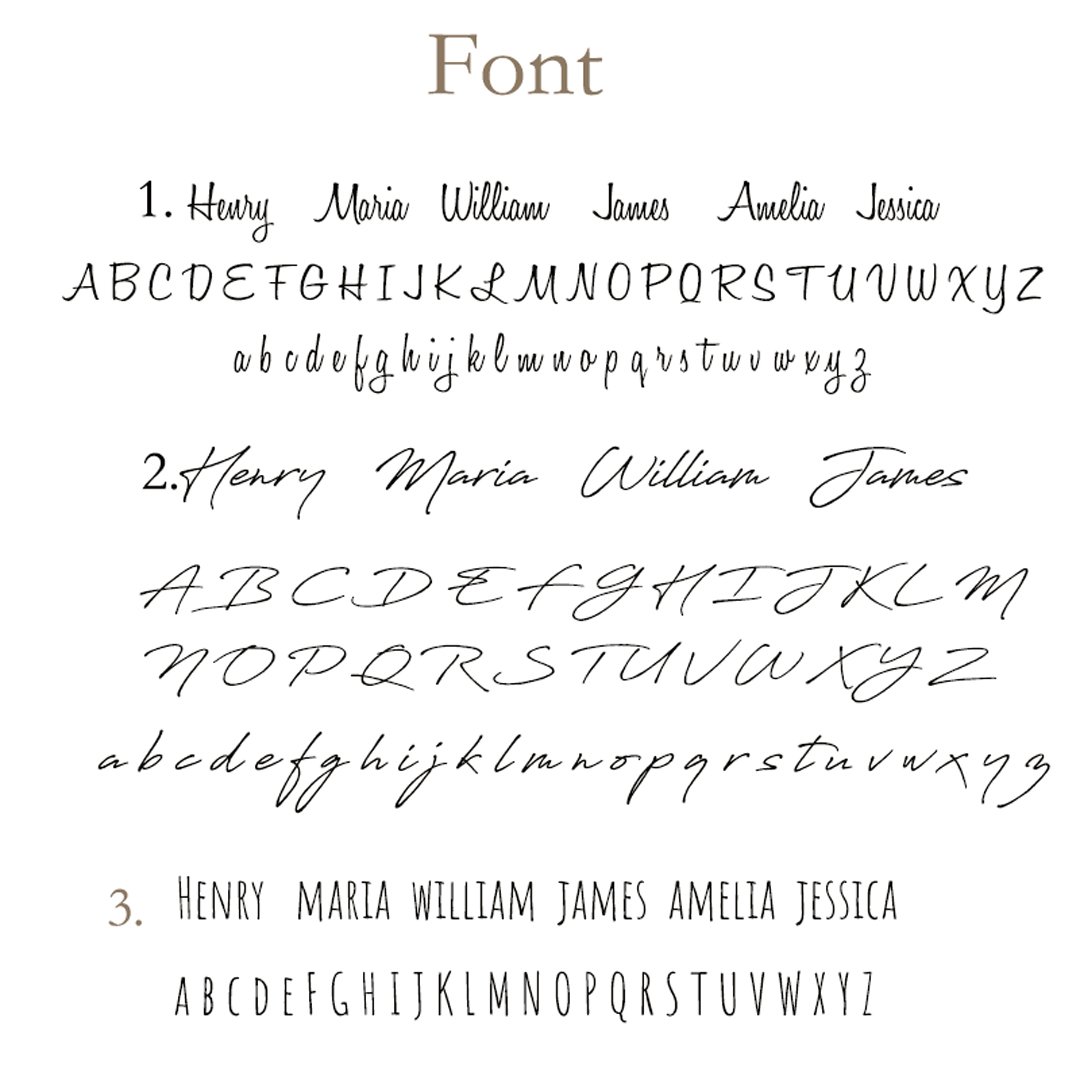 Font
1. Henry Maria William James Amelia Jessica
ABCDEFGHIJKLMNOPQRSTUVWXYZ
abcdefghijklmnopqrstuvwxyz
2. Henry Maria William James
ABCDEFGHIJKLM
NOPQRSTUVWXYZ
abcdefghijklmnopqrstuvwxyz
3. HENRY MARIA WILLIAM JAMES AMELIA JESSICA
ABCDEFGHIJKLMNOPQRSTUVWXYZ